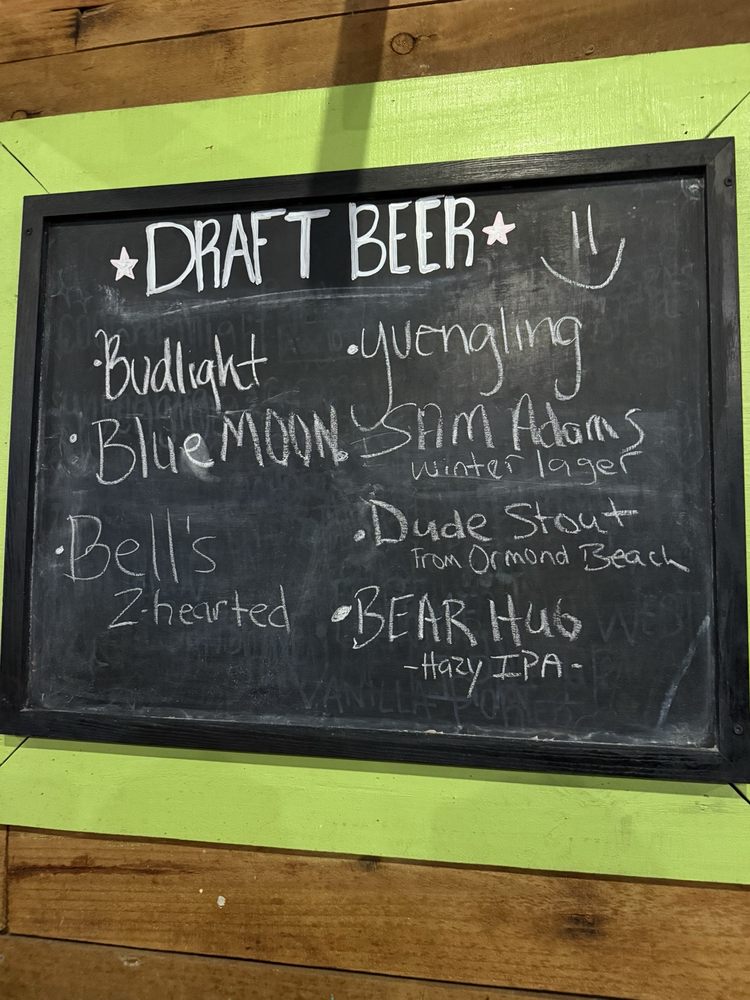 ★DRAFT BEER★
•Budlight
•Blue MOON
•Bell's
2-hearted
•yuengling
•SAM Adams
winter lager
•Dude Stout
From Ormond Beach
•BEAR Hug
-Hazy IPA-
VANILLA PORTER